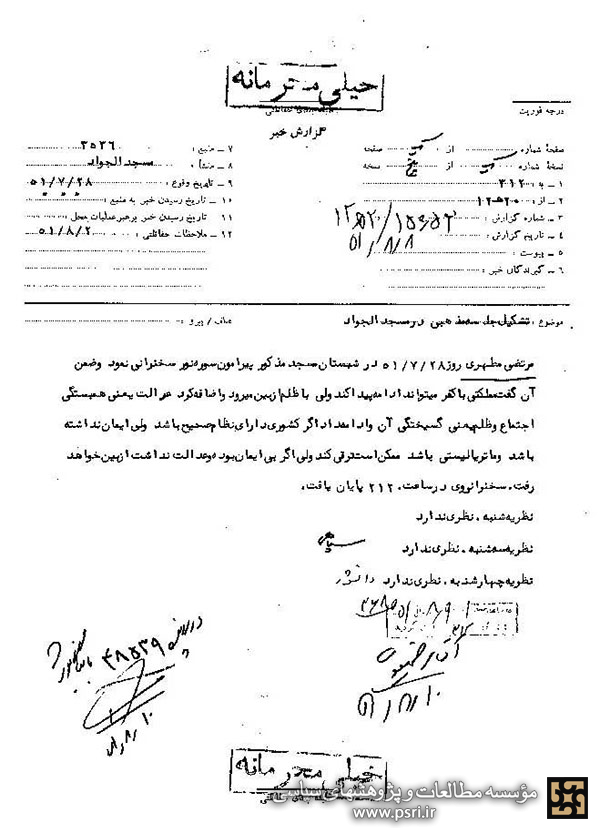 خیلی محرمانه
درجه فوریت
گزارش خبر
صفحه شماره یک از یک صفحه
نسخه شماره یک از پنج نسخه
۱ - به : ۳۱۲
۲ - از : ۱۲۵۲۰
۳ - شماره گزارش :
۴ - تاریخ گزارش : ۵۱/۸/۸
۵ - پیوست :
۶ - گیرندگان خبر :
۷ - منبع : ۳۵۳۶
۸ - منشأ : مسجدالجواد
۹ - تاریخ وقوع : ۵۱/۷/۲۸
۱۰ - تاریخ رسیدن خبر به منبع :
۱۱ تاریخ رسیدن خبر برهبر عملیات محل
۱۲ - ملاحظات حفاظتی : ۵۱/۸/۲
موضوع : تشکیل جلسه مذهبی در مسجد الجواد
عطف / پیرو :
مرتضی مطهری روز ۵۱/۷/۲۸ در شبستان مسجد مذکور پیرامون سوره نور سخنرانی نمود وضمن
آن گفت مملکتی با کفر میتواند ادامه پیدا کند ولی با ظلم ازبین میرود واضافه کرد عدالت یعنی همبستگی
اجتماع وظلم یعنی گسیختگی آن وادامه داد اگر کشوری دارای نظام صحیح باشد ولی ایمان نداشته
باشد وماتریالیستی باشد ممکن است ترقی کند ولی اگر بی ایمان بود وعدالت نداشت ازبین خواهد
رفت. سخنرانی وی در ساعت ۲۱۲۰ پایان یافت.
نظریه شنبه . نظری ندارد
نظریه سه شنبه . نظری ندارد
نظریه چهارشنبه . نظری ندارد دانشور
۵۱/۸/۱۰
خیلی محرمانه
مؤسسه مطالعات و پژوهشهای سیاسی
www.psri.ir